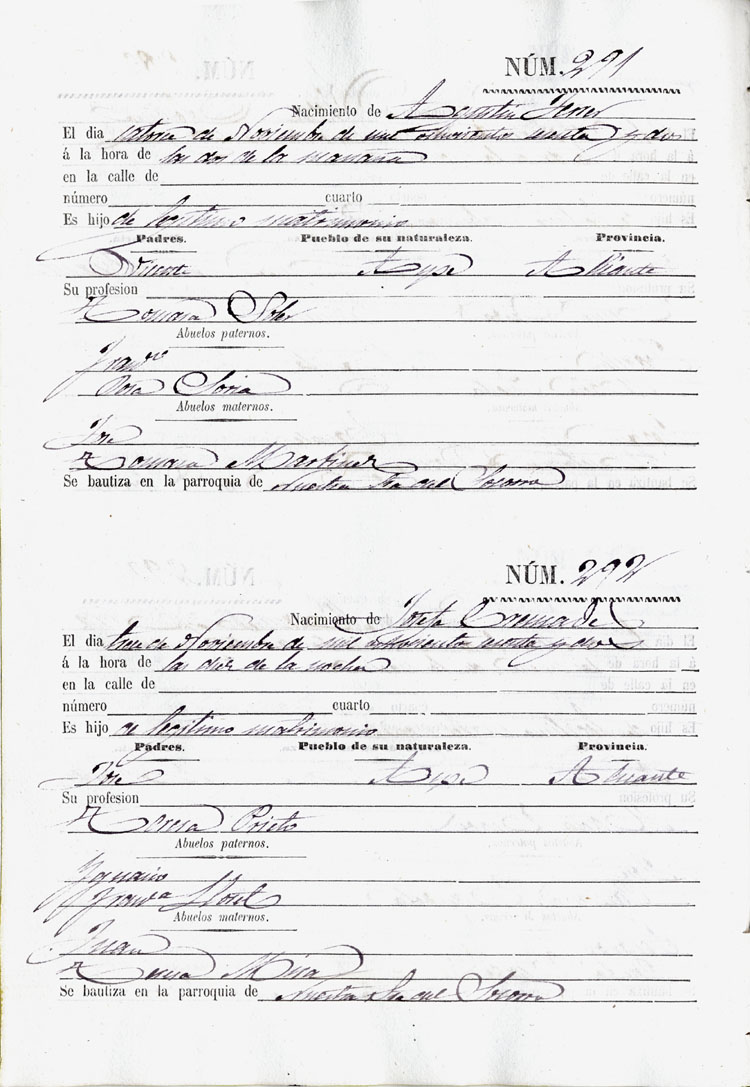 NÚM. 291
Nacimiento de Agustin Ferrer
El dia catorce de Noviembre de mil ochocientos sesenta y dos
á la hora de las dos de la mañana
en la calle de
número cuarto
Es hijo de legitimo matrimonio
Padres. Pueblo de su naturaleza. Provincia.
Vicente Aspe Alicante
Su profesion
Tomasa Soler
Abuelos paternos.
Franco
Rosa Soria
Abuelos maternos.
Jose
Tomasa Martinez
Se bautiza en la parroquia de Nuestra Sra del Socorro
NÚM. 292
Nacimiento de Josefa Cremades
El dia trece de Noviembre de mil ochocientos sesenta y dos
á la hora de las diez de la noche
en la calle de
número cuarto
Es hijo de legitimo matrimonio
Padres. Pueblo de su naturaleza. Provincia.
Jose Aspe Alicante
Su profesion
Teresa Prieto
Abuelos paternos.
Ygnacio
Franca
Abuelos maternos.
Juan
Mira
Se bautiza en la parroquia de Nuestra Sra del Socorro